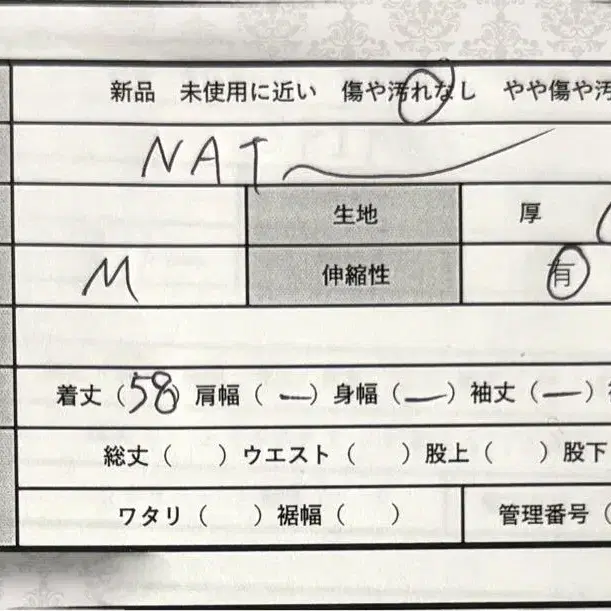 新品 未使用に近い 傷や汚れなし やや傷や汚
NAT
生地 厚
M 伸縮性 有
着丈（58）肩幅（—）身幅（—）袖丈（—）
総丈（ ）ウエスト（ ）股上（ ）股下
ワタリ（ ）裾幅（ ） 管理番号（